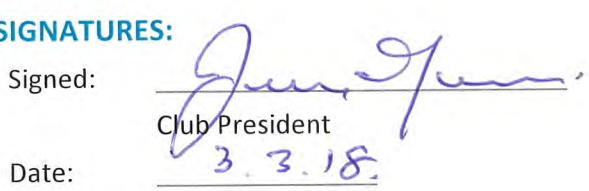 SIGNATURES:
Signed:
Club President
Date: 3.3.18.